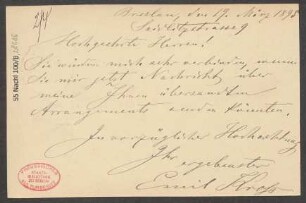 Breslau, den 17. März 1895
Seidlitzstrasse 9
Hochgeehrte Herren!
Sie würden mich sehr verbinden, wenn
Sie mir jetzt Nachricht über
meine Ihnen übersandten
Arrangements senden könnten.
In vorzüglicher Hochachtung
Ihr
ergebenster
Emil
55 Nachl 100/B